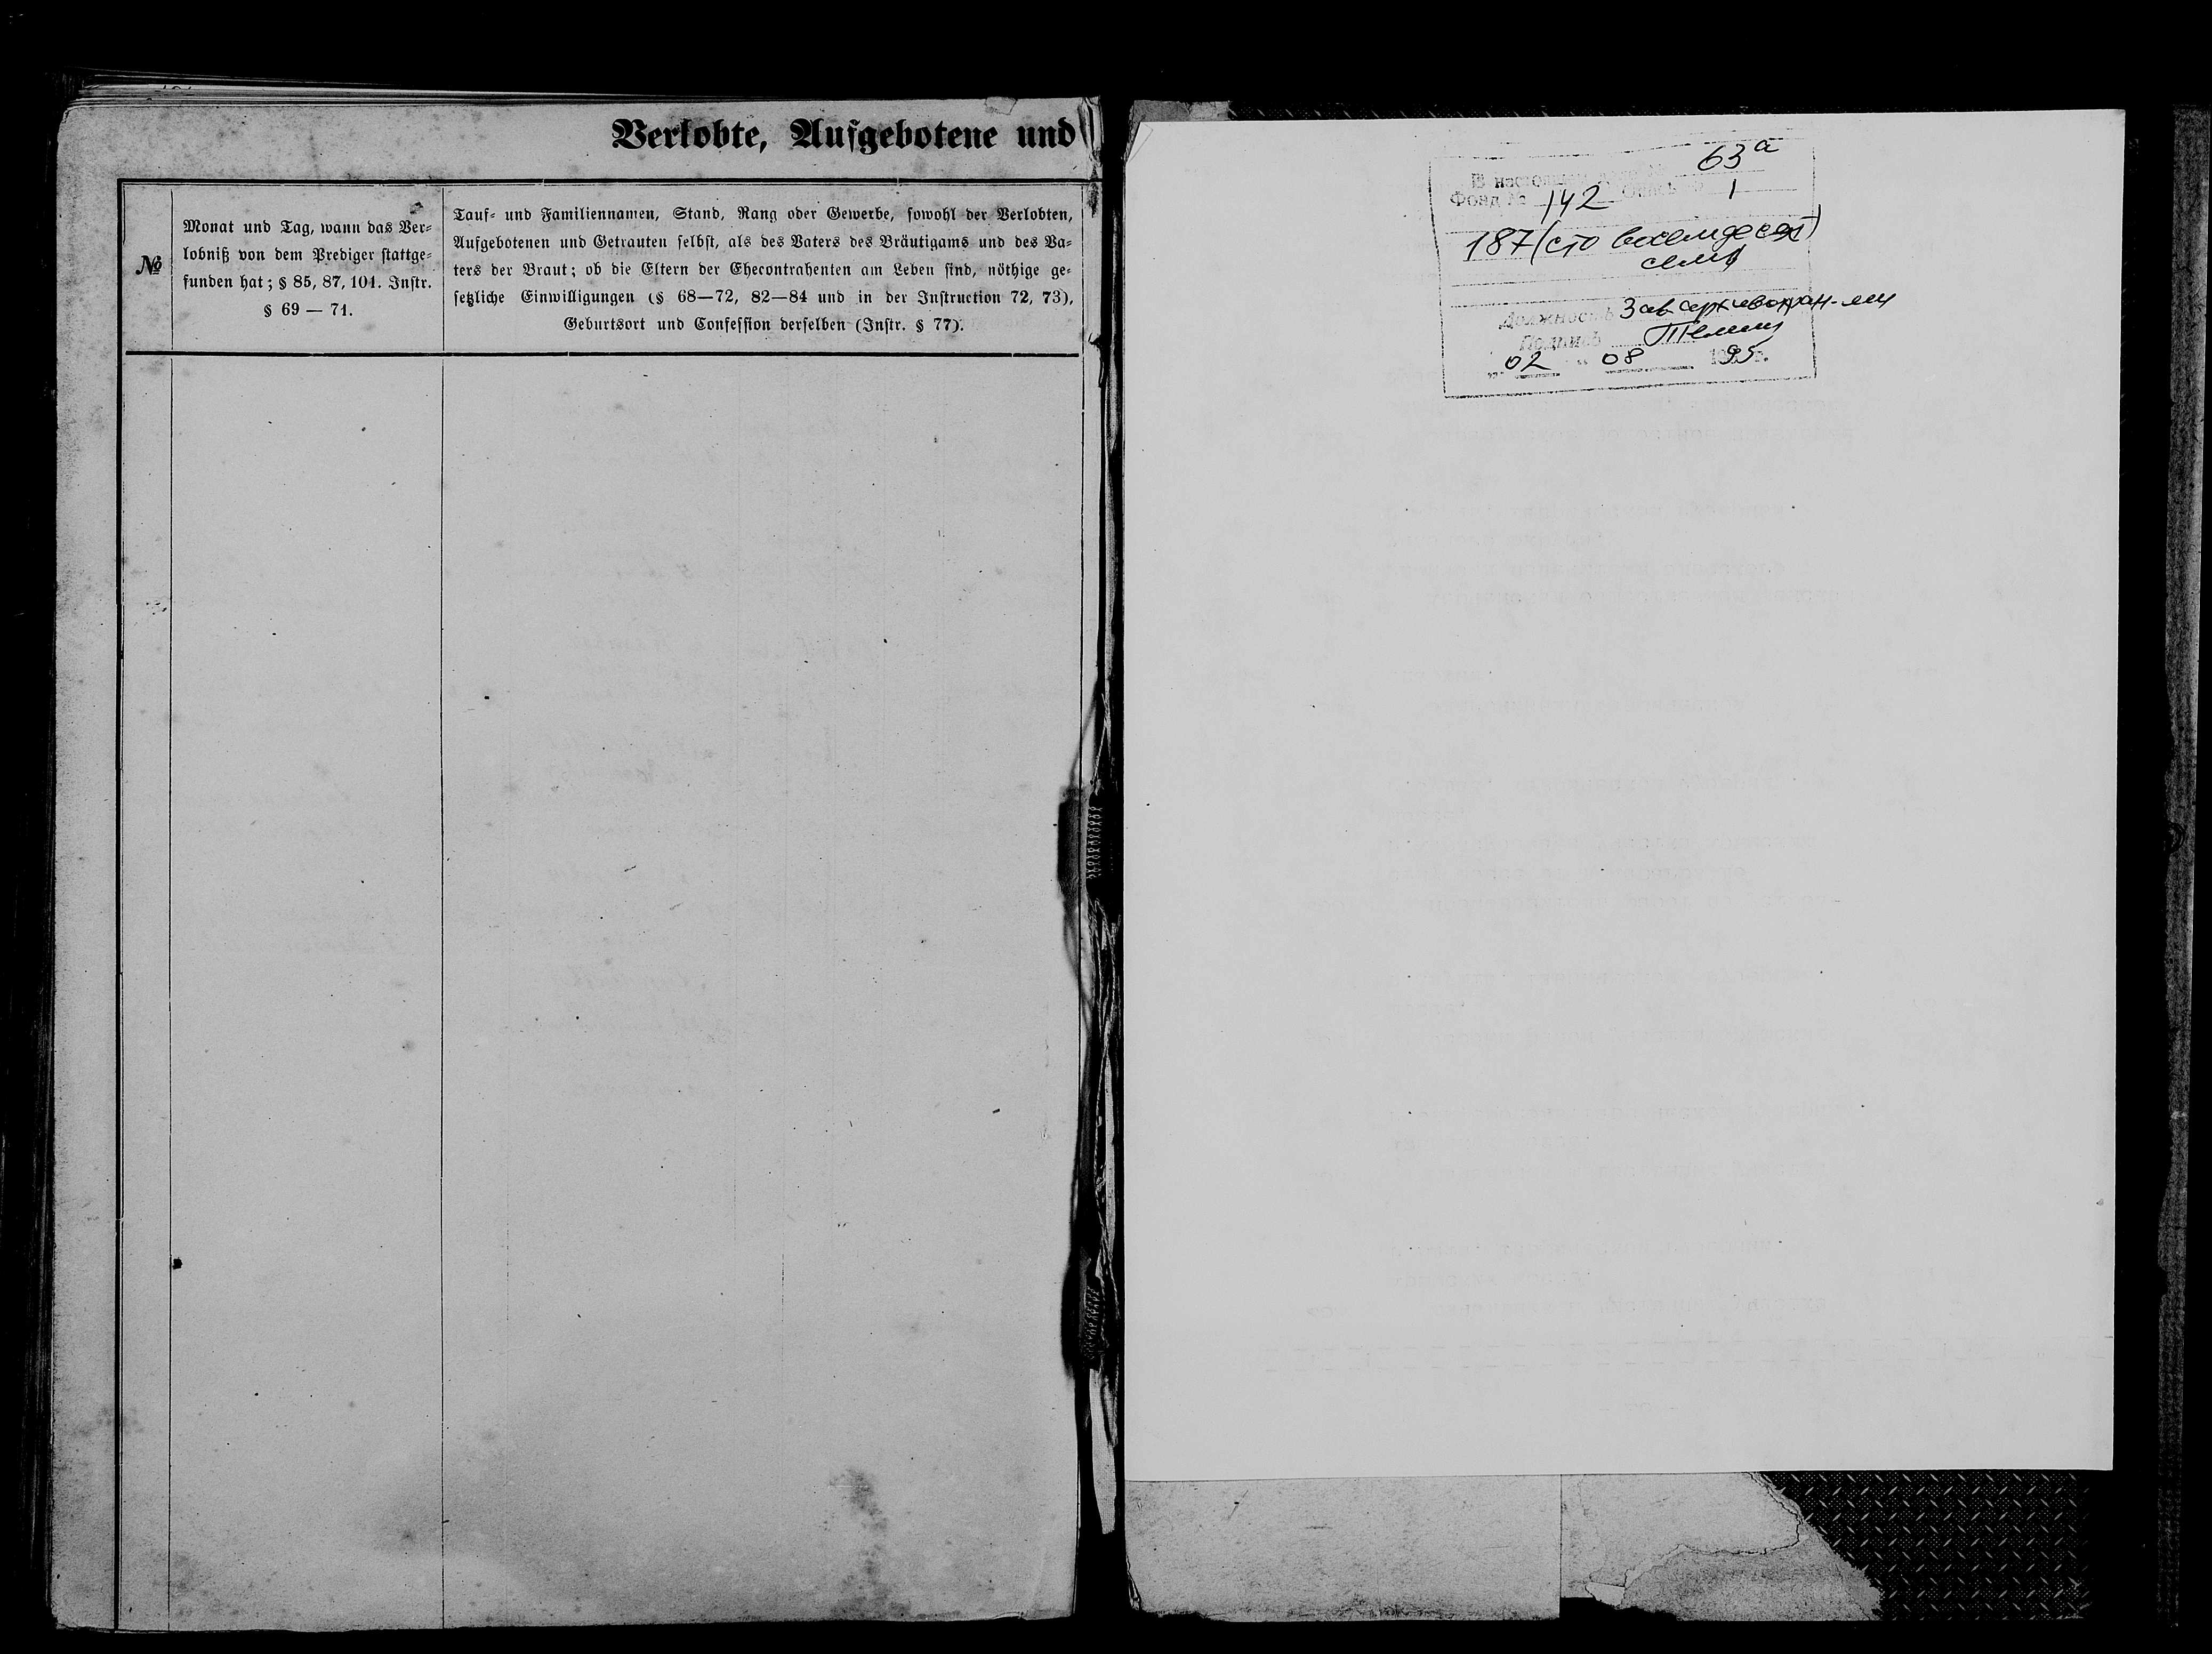 Verlobte, Aufgebotene und
№
Monat und Tag, wann das Ver-
lobniß von dem Prediger stattge-
funden hat; § 85, 87, 101. Instr.
§ 69 — 71.
Tauf- und Familiennamen, Stand, Rang oder Gewerbe, sowohl der Verlobten,
Aufgebotenen und Getrauten selbst, als des Vaters des Bräutigams und des Va-
ters der Braut; ob die Eltern der Ehecontrahenten am Leben sind, nöthige ge-
setzliche Einwilligungen (§ 68—72, 82—84 und in der Instruction 72, 73),
Geburtsort und Confession derselben (Instr. § 77).
В настоящем деле № 63а
Фонд № 142 Опись № 1
187 (сто восемьдесят)
семь
Должность Зав. архивохран-ем
Подпись
„ 02 “ 08 1995г.